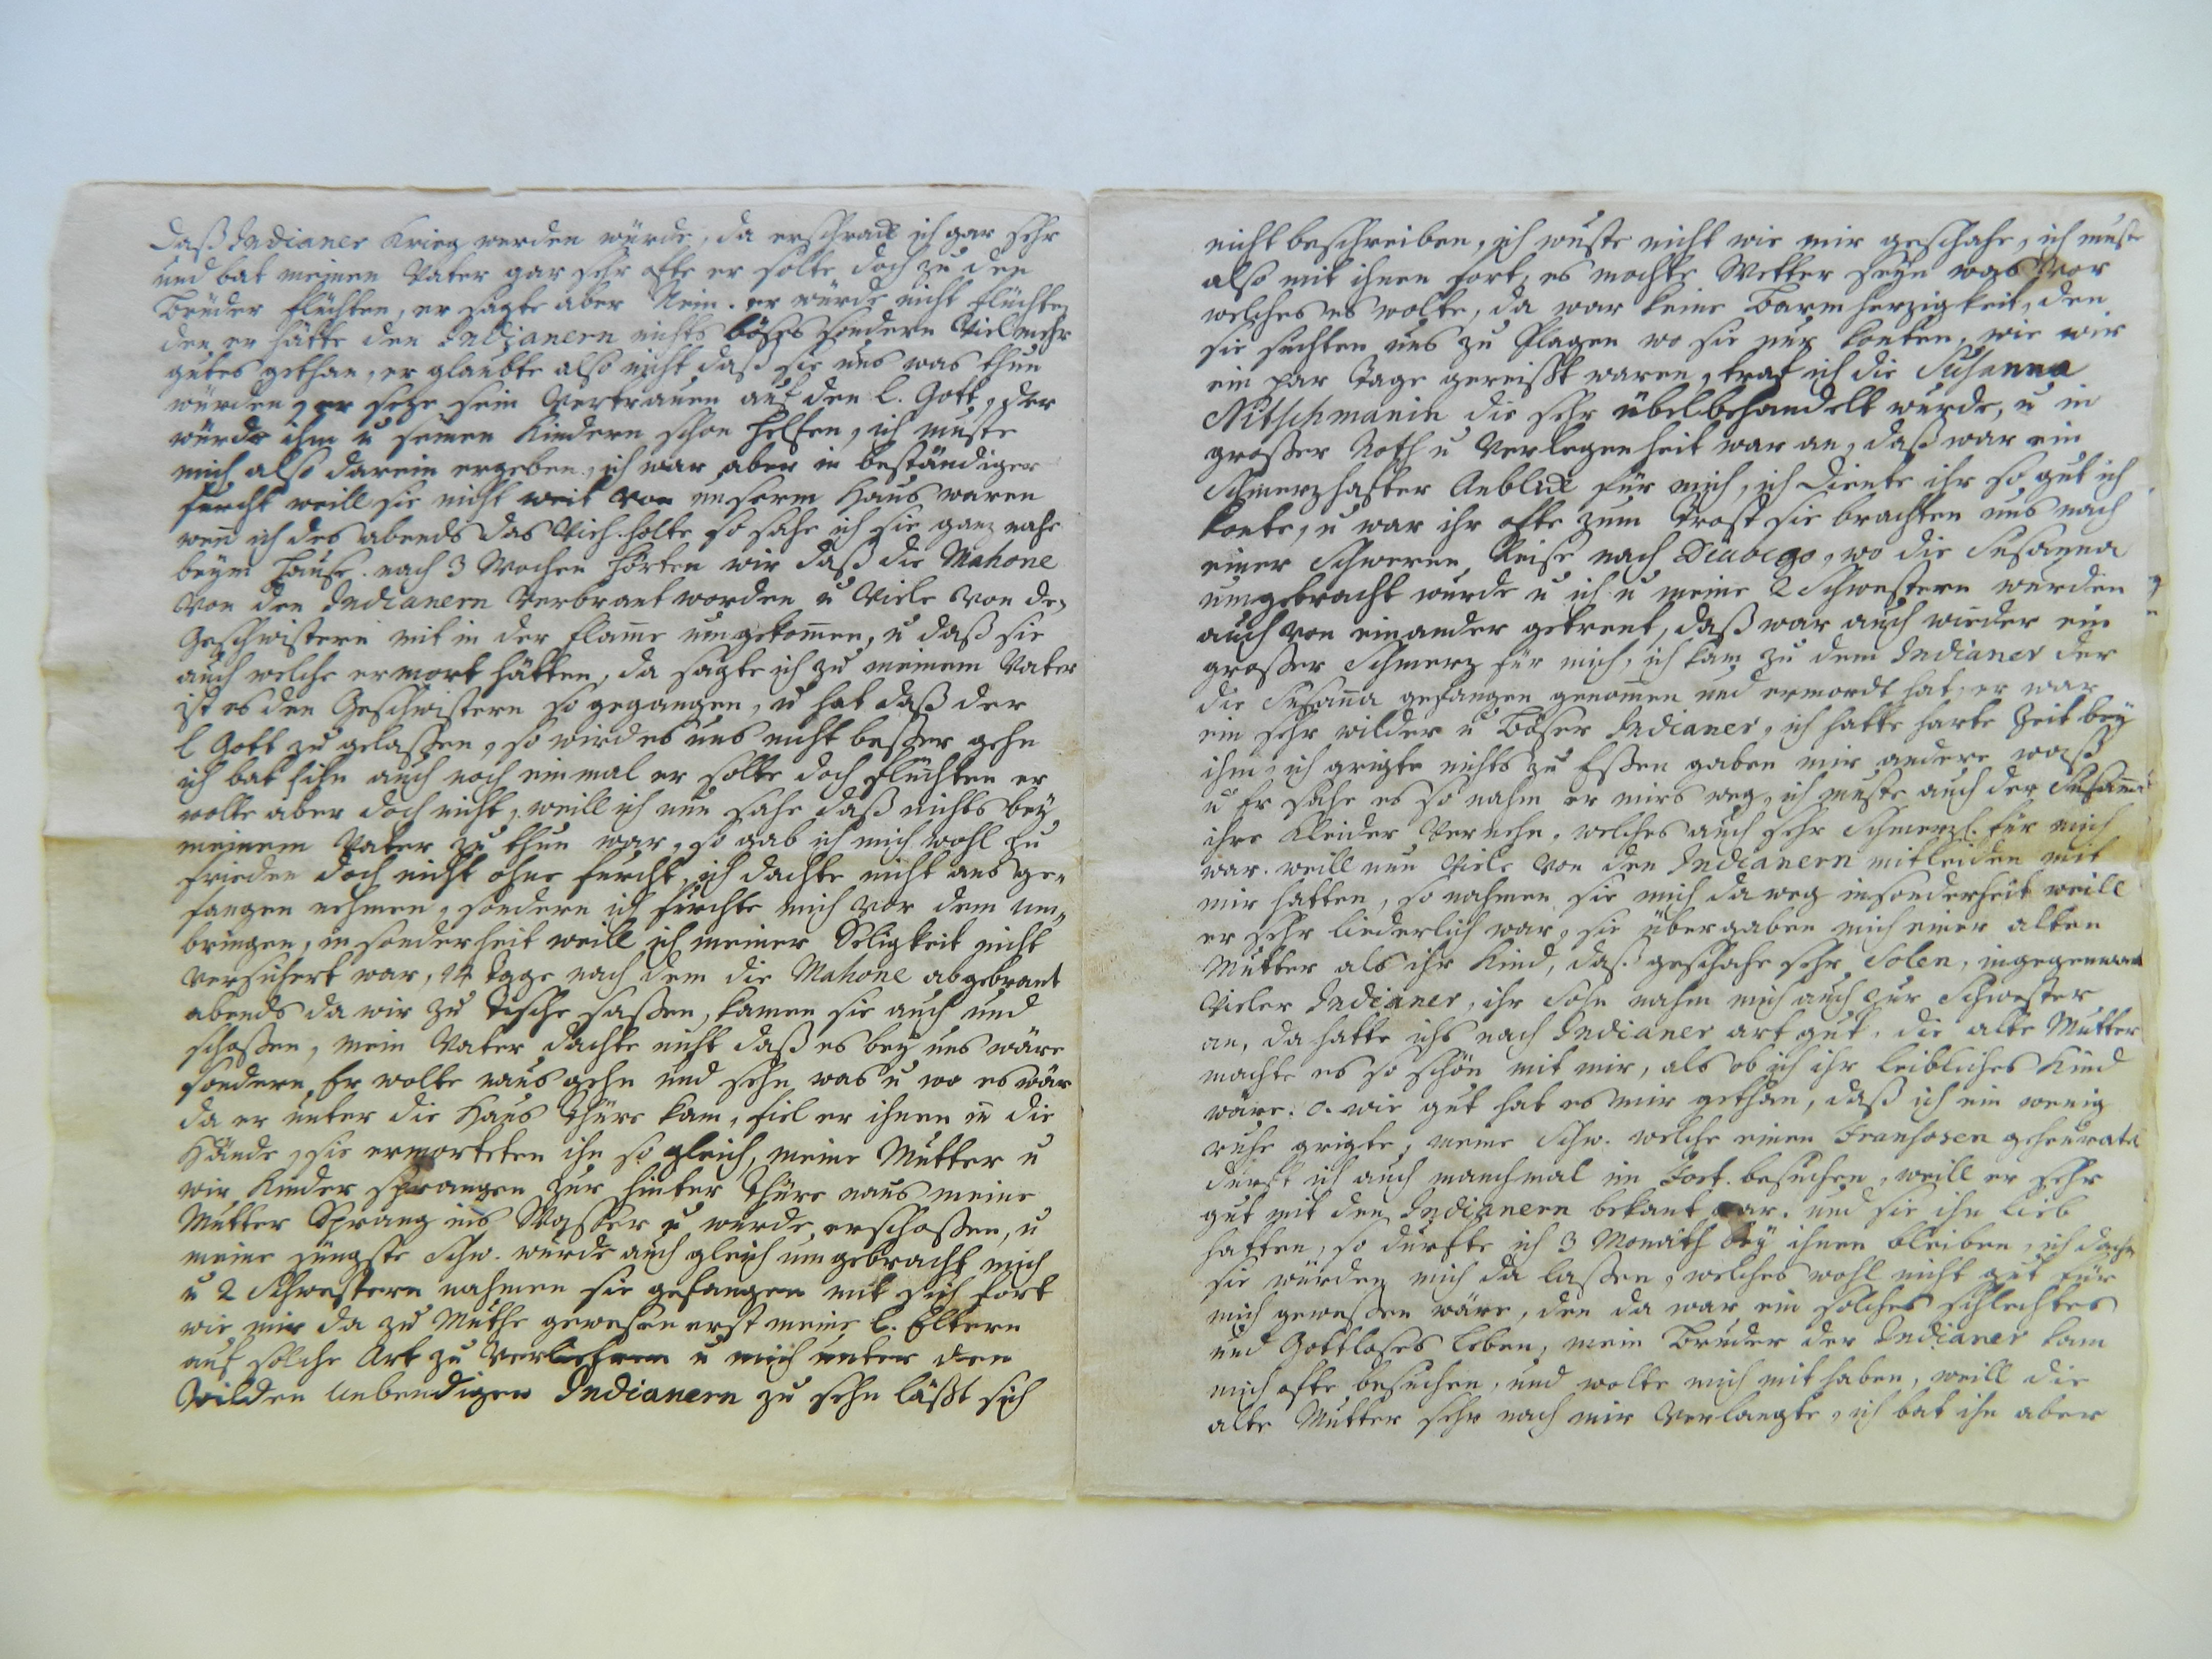 daß Indianer Krieg werden würde, da erschrack ich gar sehr
und bat meinen Vater gar sehr offte er solte doch zu den
Brüder flüchten, er sagte aber Nein. er würde nicht flüchten
den er hätte den Indianern nichts böses sondern Vielmehr
gutes gethan, er glaubte also nicht daß sie uns was thun
würden, er seze sein Vertrauen auf den l. Gott, der
würde ihm u seinen Kindern schon helfen, ich muste
mich also darein ergeben, ich war aber in beständiger
furcht weill sie nicht weit von unserm Haus waren
wen̄ ich des abends das Vieh holte so sahe ich sie ganz nahe
beym Hause. nach 3 Wochen hörten wir daß die Mahone
von den Indianern Verbrant worden u Viele von den
Geschwistern mit in der flam̄e umgekom̄en, u daß sie
auch welche ermort hätten, da sagte ich zu meinem Vater
ist es den Geschwistern so gegangen, u hat daß der
l Gott zu gelaßen, so wird es uns nicht beßer gehn
ich bat ihn auch noch einmal er solte doch flüchten er
wolte aber doch nicht, weill ich nun sahe daß nichts bey
meinem Vater zu thun war, so gab ich mich wohl zu
frieden doch nicht ohne furcht, ich dachte nicht ans ge=
fangen nehmen, sondern ich fürchte mich vor dem um=
bringen, insonderheit weill ich meiner Seligkeit nicht
versichert war, 14 tage nach dem die Mahone abgebrant
abends da wir zu Tische saßen, kamen sie auch und
schoßen, mein Vater dachte nicht daß es bey uns wäre
sondern Er wolte naus gehn und sehn was u wo es wär
da er unter die Haus thüre kam, fiel er ihnen in die
Hände, sie ermorteten ihn so gleich, meine Mutter u
wir Kinder sprangen zur hinter thüre naus meine
Mutter Sprang ins Waßer u wurde erschoßen, u
meine jüngste Schw. wurde auch gleich umgebracht mich
u 2 Schwestern nahmen sie gefangen mit sich fort
wie mir da zu Muthe gewesen erst meine l. Eltern
auf solche Art zu Verliehren u mich unter den
Wilden Unbendigen Indianern zu sehn läßt sich
nicht beschreiben, ich wuste nicht wie mir geschahe, ich muste
also mit ihnen fort, es mochte Wetter seyn was vor
welches es wolte, da war keine Barmherzigkeit, den
sie suchten uns zu Plagen wo sie nur konten, wie wir
ein par Tage gereißt waren, traf ich die Susanna
Nitschmanin die sehr übelbehandelt wurde, u in
großer Noth u Verlegenheit war an, daß war ein
Schmerzhafter Anblick für mich, ich diente ihr so gut ich
konte, u war ihr ofte zum Trost sie brachten uns nach
einer Schweren Reise nach Diabego, wo die Susanna
umgebracht wurde u ich u meine 2 Schwestern wurden
auch von einander getrent, daß war auch wieder ein
großer Schmerz für mich, ich kam zu dem Indianer der
die Susan̄a gefangen genom̄en und ermordt hat, er war
ein sehr wilder u Böser Indianer, ich hatte harte Zeit bey
ihm, ich grigte nichts zu Eßen gaben mir andere waß
u Er sahe es so nahm er mirs weg, ich muste auch der Susan̄a
ihre Kleider . welches auch sehr Schmerzl. für mich
war. weill nun Viele von den Indianern mitleiden mit
mir hatten, so nahmen sie mich da weg insonderheit weill
er sehr liederlich war, sie übergaben mich einer alten
Mutter als ihr Kind, daß geschahe sehr Solen, in gegenwart
Vieler Indianer, ihr Sohn nahm mich auch zur Schwester
an, da hatte ichs nach Indianer art gut, die alte Mutter
machte es so schön mit mir, als ob ich ihr leibliches Kind
wäre. O. wie gut hat es mir gethan, daß ich ein wenig
ruhe grigte, meine Schw. welche einen Franhosen geheurat
durft ich auch manchmal im Fort. besuchen, weill er sehr
gut mit den Indianern bekant war. und sie ihn lieb
hatten, so durfte ich 3 Monath bey ihnen bleiben, ich dachte
sie würden mich da laßen, welches wohl nicht gut für
mich geweßen wäre, den da war ein solches schlechtes
und Gottloses leben, mein Bruder der Indianer kam
mich ofte besuchen, und wolte mich mit haben, weill die
alte Mutter sehr nach mir Verlangte, ich bat ihn aber